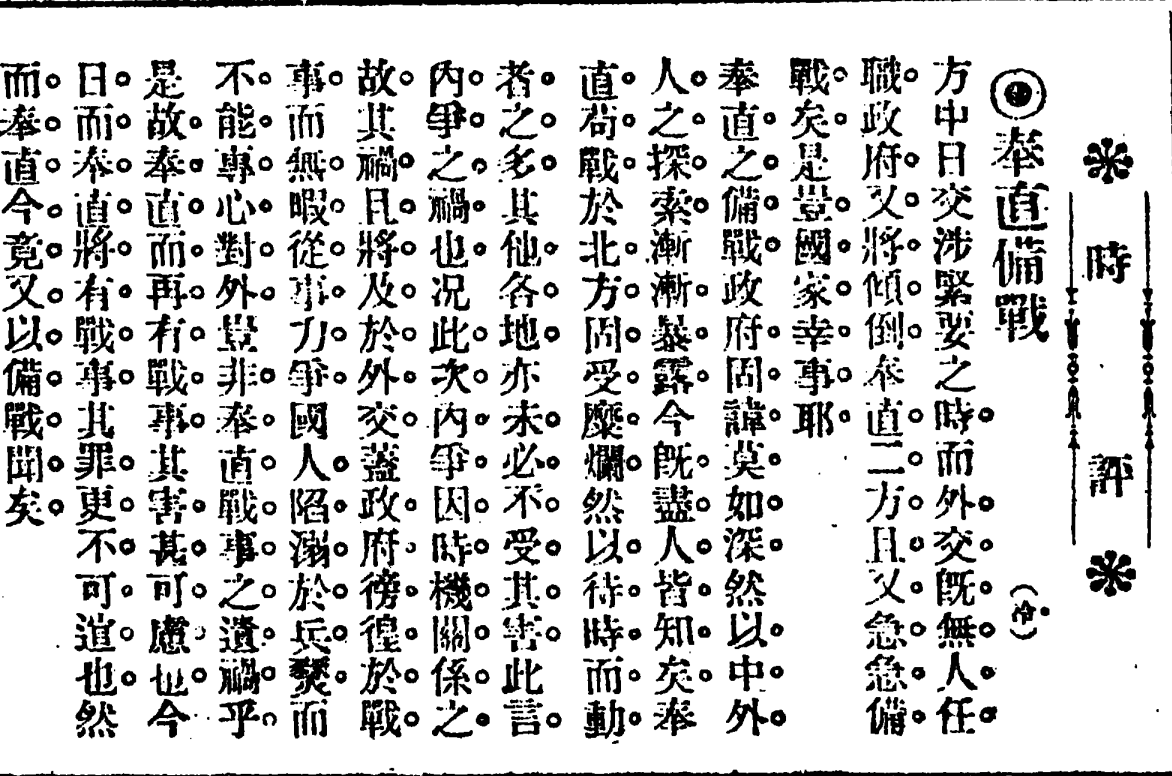 時評
奉直備戰 (冷)
方中日交涉緊要之時而外交旣無人任
職政府又將傾倒奉直二方且又急急備
戰矣是豈國家幸事耶
奉直之備戰政府固諱莫如深然以中外
人之探索漸漸暴露今旣盡人皆知矣奉
直苟戰於北方固受糜爛然以待時而動
者之多其他各地亦未必不受其害此言
內爭之禍也况此次內爭因時機關係之
故其禍且將及於外交蓋政府徬徨於戰
事而無暇從事力爭國人陷溺於兵燹而
不能專心對外豈非奉直戰事之遺禍乎
是故奉直而再有戰事其害甚可慮也今
日而奉直將有戰事其罪更不可逭也然
而奉直今竟又以備戰聞矣